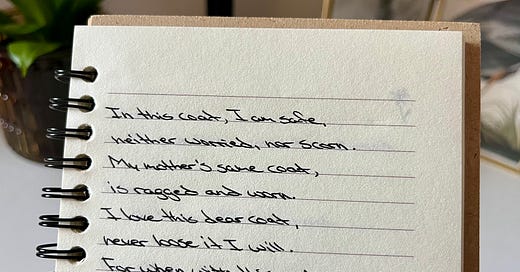 In this coat, I am safe,
neither worried, nor scorn.
My mother's same coat,
is ragged and worn.
I love this dear coat,
never loose it I will.
For when